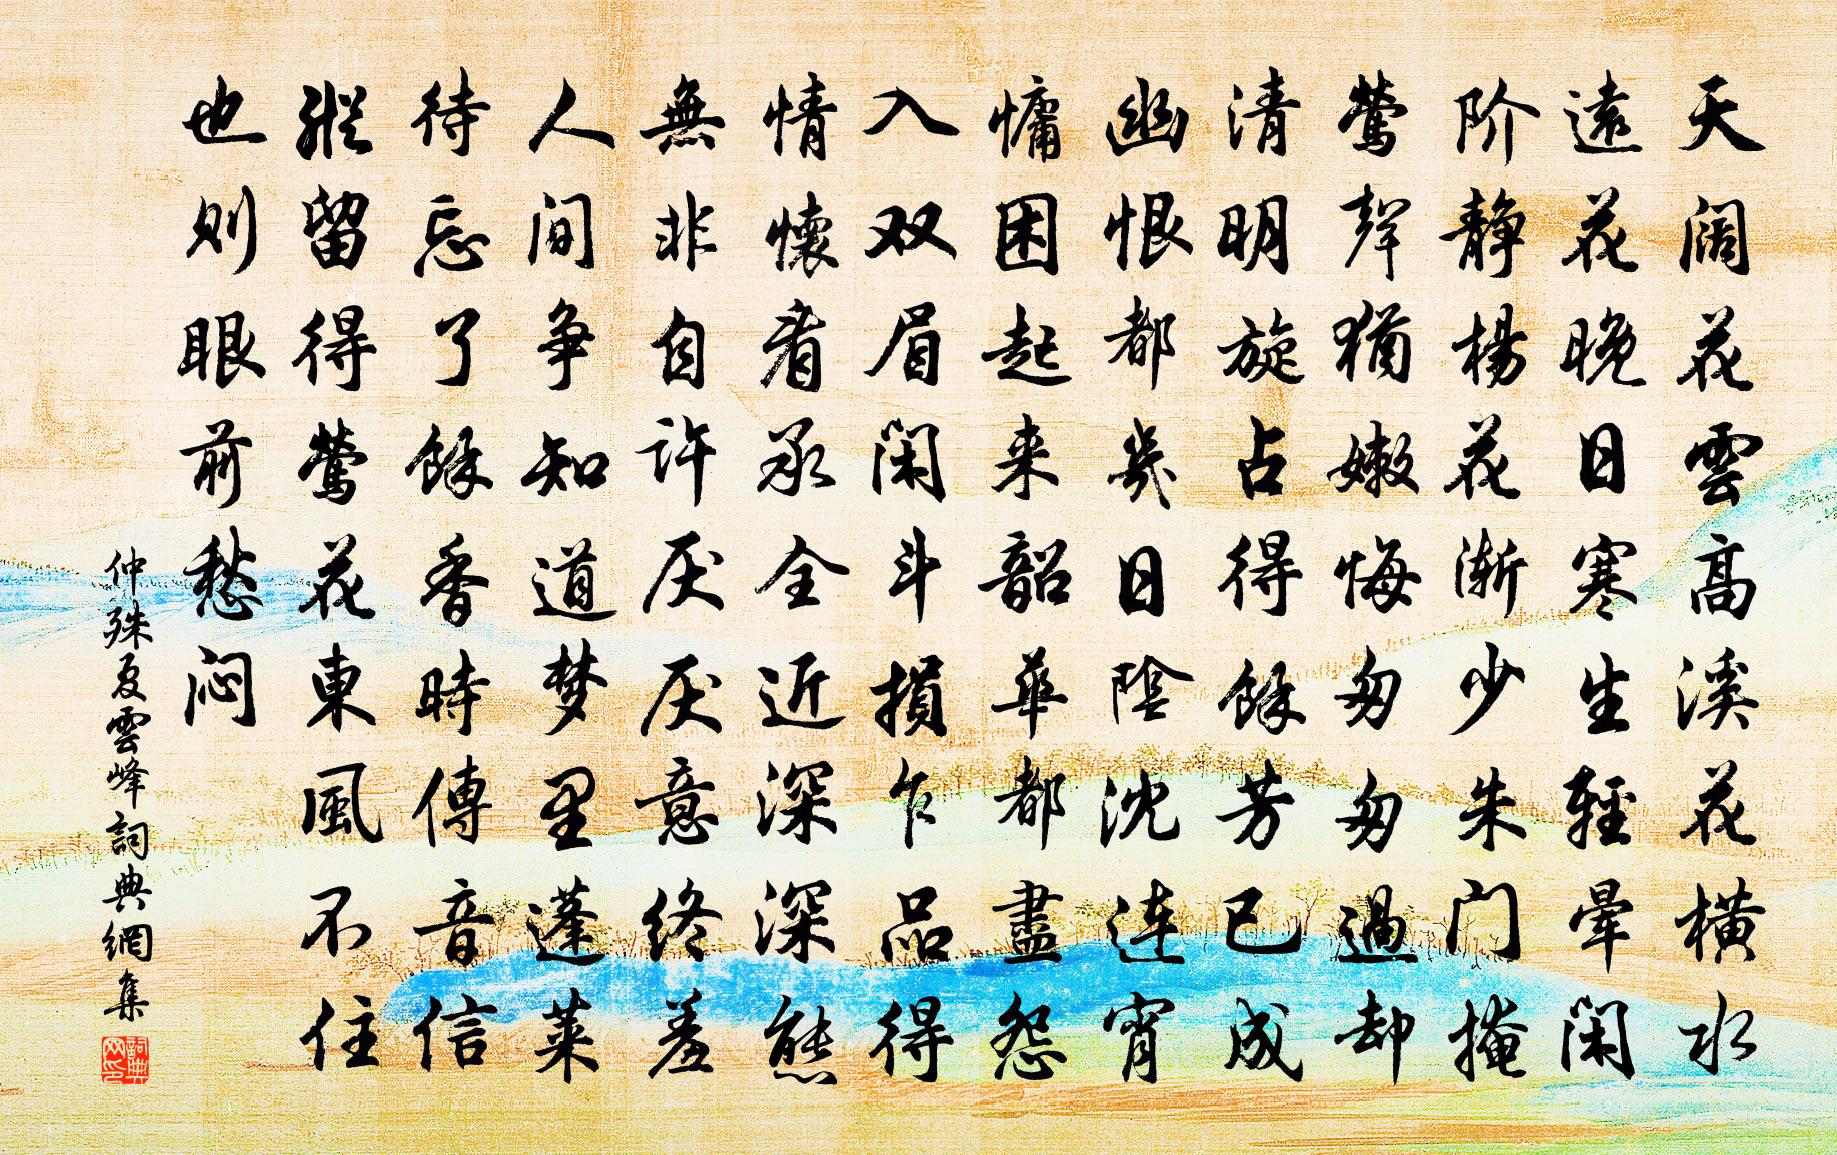 天阔花雲高溪花横水
遠花晚日寒生輕暈闲
阶静楊花渐少朱门掩
莺聲猶嫩悔匆匆過却
清明旋占得餘芳已成
幽恨都幾日陰沈连宵
慵困起来韶華都盡怨
入双眉闲斗損乍品得
情懷看承全近深深態
無非自许厌厌意终羞
人间争知道梦里蓬莱
待忘了餘香時傳音信
縱留得莺花東風不住
也则眼前愁闷
仲殊夏雲峰詞典網集
詞典网印